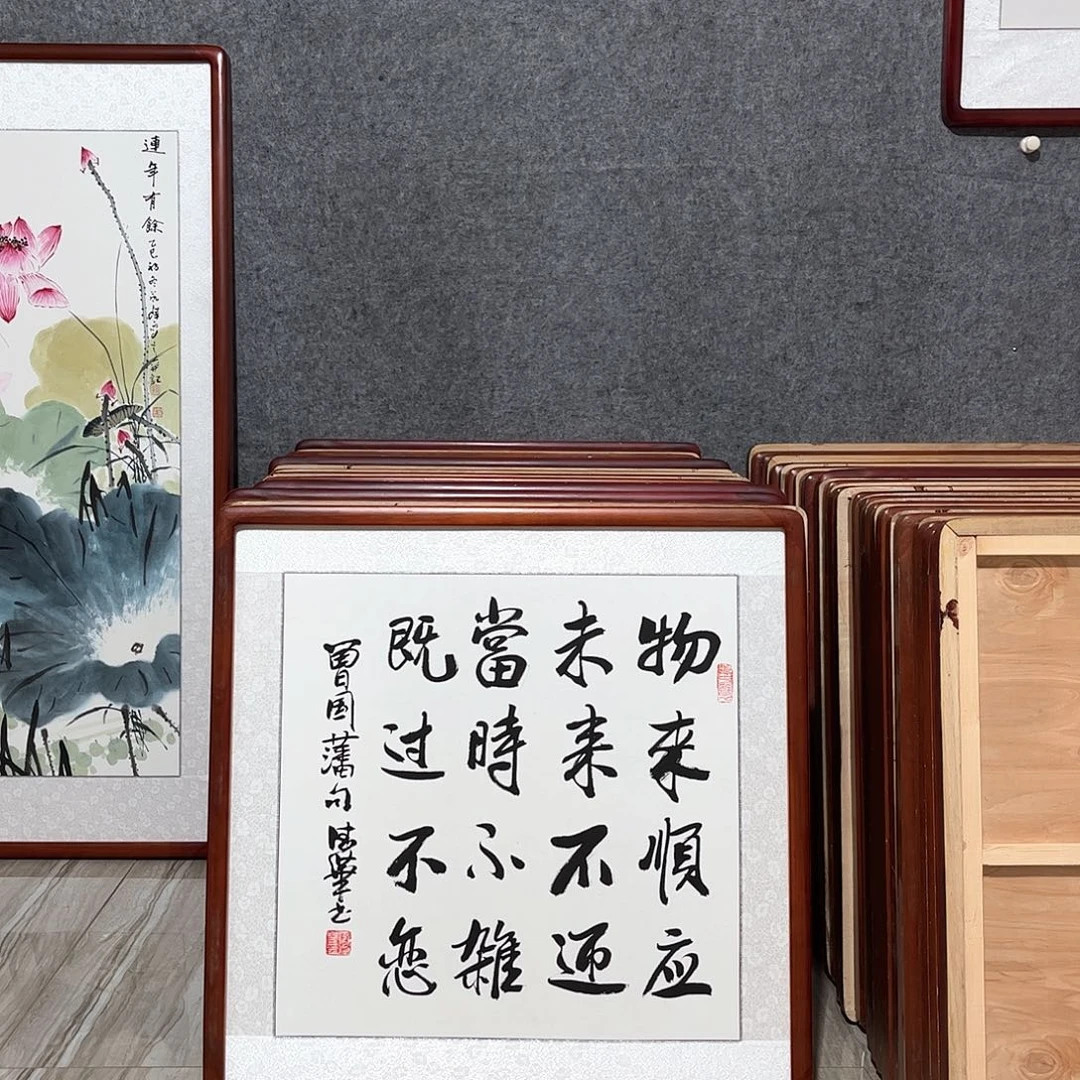 連年有餘
物來順应
未来不迎
當時不雜
既过不恋
曾国藩句